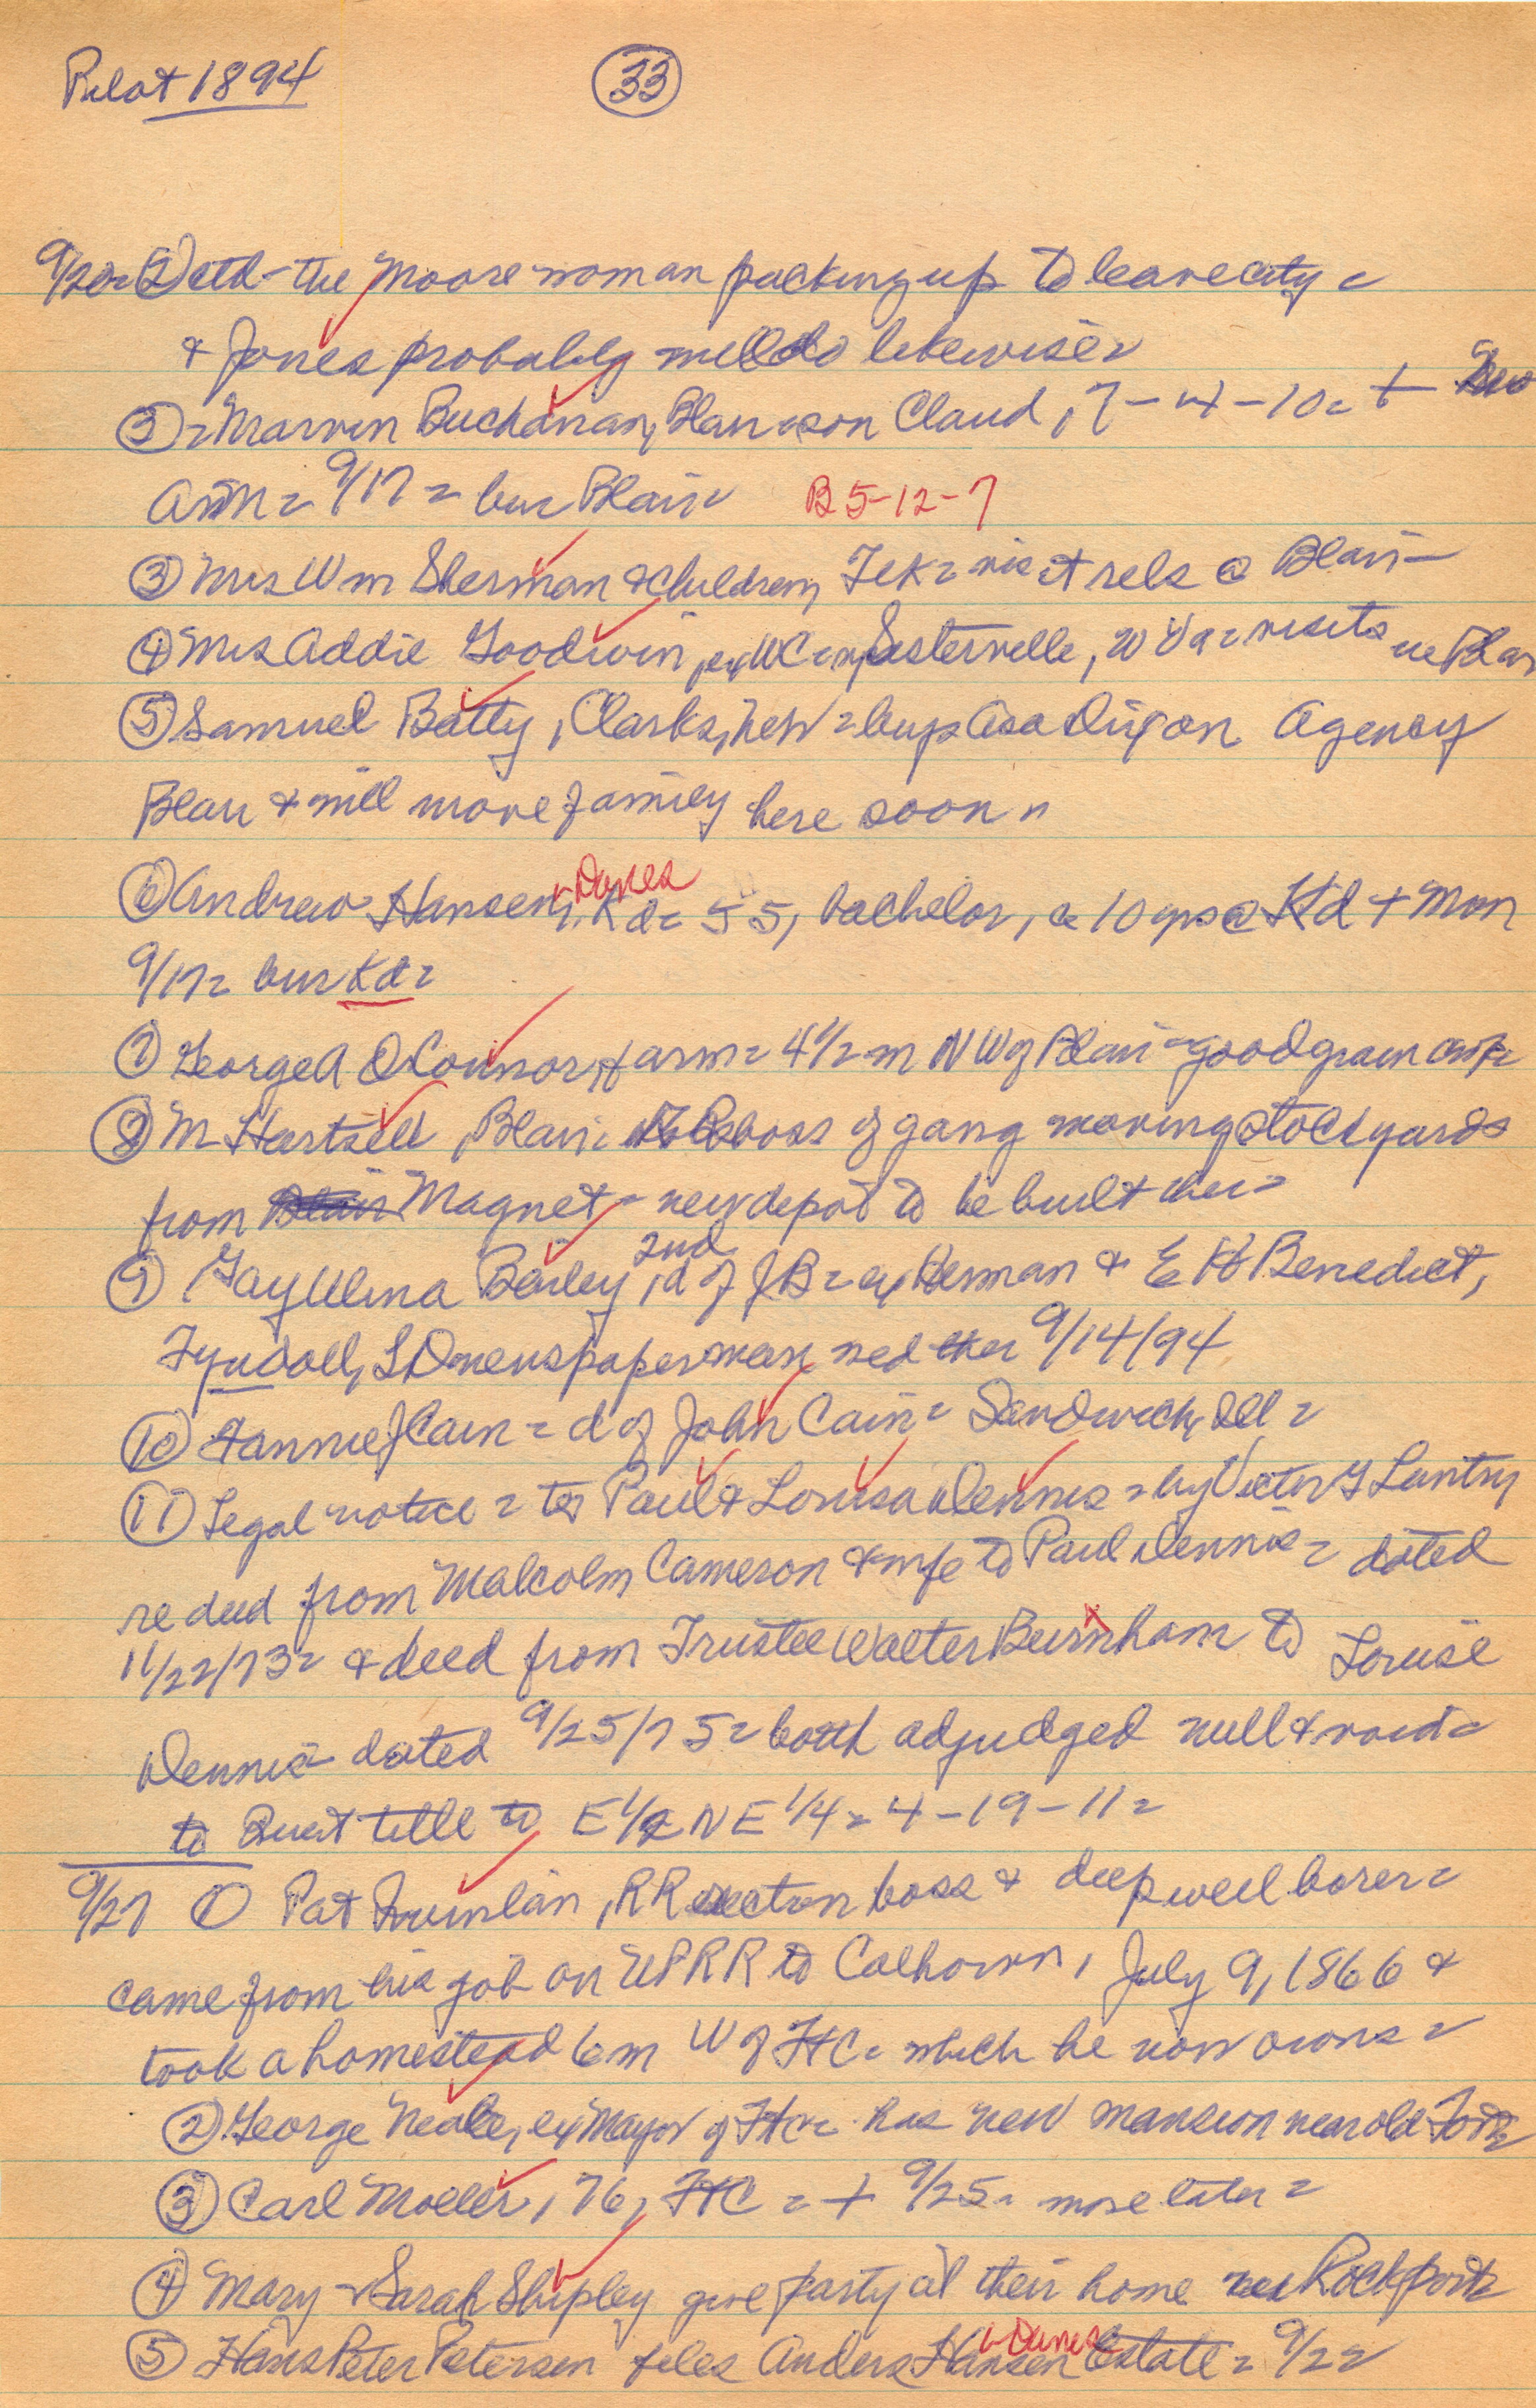 Pilot 1894
33
9/20 = ② ctd - the Moore woman packing up to leave city =
& Jones probably will do likewise =
= Marvin Buchanan, Blair = son Claud, 7-4-10 = +
9/17 = bur Blair = B 5-12-7
③ Mrs Wm Sherman & children, Tek = visit rels @ Blair -
④ Mrs Addie Goodwin, ex WC = Sistersville, W Va = visits Blair
⑤ Samuel Batty, Clarks, Neb = buys Asa Dixon Agency
Blair & will move family here soon =
⑥ Andrew Hansen, Kd = 55, bachelor, 10 yrs @ Kd + Mon
Danes
9/17 = bur Kd =
⑦ George A O'Connor, farm = 4 1/2 m NW of Blair = good grain
⑧ M Hartzell, Blair = boss of gang moving stockyards
from Blair Magnet = new depot to be built
⑨ Gay Ulina Bailey, 2nd d of J B = ex Herman & E H Benedict,
Tyndall, S D newspaperman, wed 9/14/94
⑩ Fannie J Cain = d of John Cain = Sandwich, Ill =
⑪ Legal notice = to Paul & Louisa Dennis = by Victor G Lantry
re deed from Malcolm Cameron & wife to Paul Dennis = dated
11/22/73 = & deed from Trustee Walter Burnham to Louise
Dennis dated 9/25/75 = both adjudged null & void =
to Quiet title to E 1/2 NE 1/4 = 4-19-11 =
9/27 ① Pat Quinlan, RR section boss & deep well borer =
came from his job on UPRR to Calhoun, July 9, 1866 &
took a homestead 6 m W of FtC = which he now owns =
② George Neale, ex Mayor of FtC = has new mansion near old Fort =
③ Carl Moeller, 76, FtC = + 9/25 = more later =
④ Mary & Sarah Shipley give party at their home Rockport =
⑤ Hans Peter Petersen files Anders Hansen Estate = 9/22
Danes